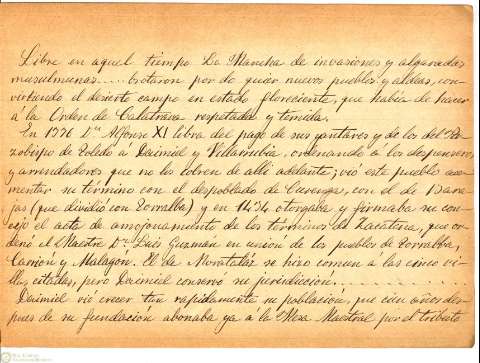 Libre en aquel tiempo La Mancha de invasiones y algaradas
musulmanas..... brotaron por do quier nuevos pueblos y aldeas, con-
virtiendo el desierto campo en estado floreciente, que habia de hacer
á la Orden de Calatrava respetada y temida.
En 1336 Dn Alfonso XI libra del pago de sus yantares y de los del Ar-
zobispo de Toledo á Daimiel y Villarrubia, ordenando á los despenseros
y arrendadores que no los cobren de allí adelante; vió este pueblo au-
mentar su término con el despoblado de Curenga, con el de Barra-
jas (que dividió con Torralba) y en 1434 otorgaba y firmaba su con-
cejo el acta de amojonamiento de los términos de Zacatena, que or-
denó el Maestre Dn Luis Guzmán en unión de los pueblos de Torralba,
Carrión y Malagón. El de Moratalaz se hizo común á las cinco vi-
llas citadas, pero Daimiel conservó su jurisdicción..........
Daimiel vió crecer tan rapidamente su población, que cien años des-
pues de su fundación abonaba ya á la Mesa Maestral por el tributo